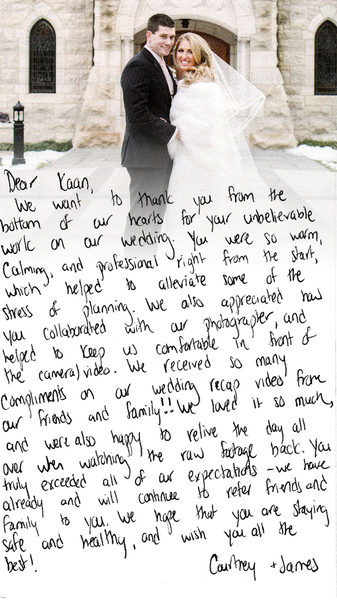 Dear Kaan,
We want to thank you from the
bottom of our hearts for your unbelievable
work on our wedding. You were so warm,
calming, and professional right from the start,
which helped to alleviate some of the
stress of planning. We also appreciated how
you collaborated with our photographer, and
helped to keep us comfortable in front of
the camera/video. We received so many
compliments on our wedding recap video from
our friends and family!! We loved it so much,
and were also happy to relive the day all
over when watching the raw footage back. You
truly exceeded all of our expectations - we have
already and will continue to refer friends and
family to you. We hope that you are staying
safe and healthy, and wish you all the
best!
Courtney + James